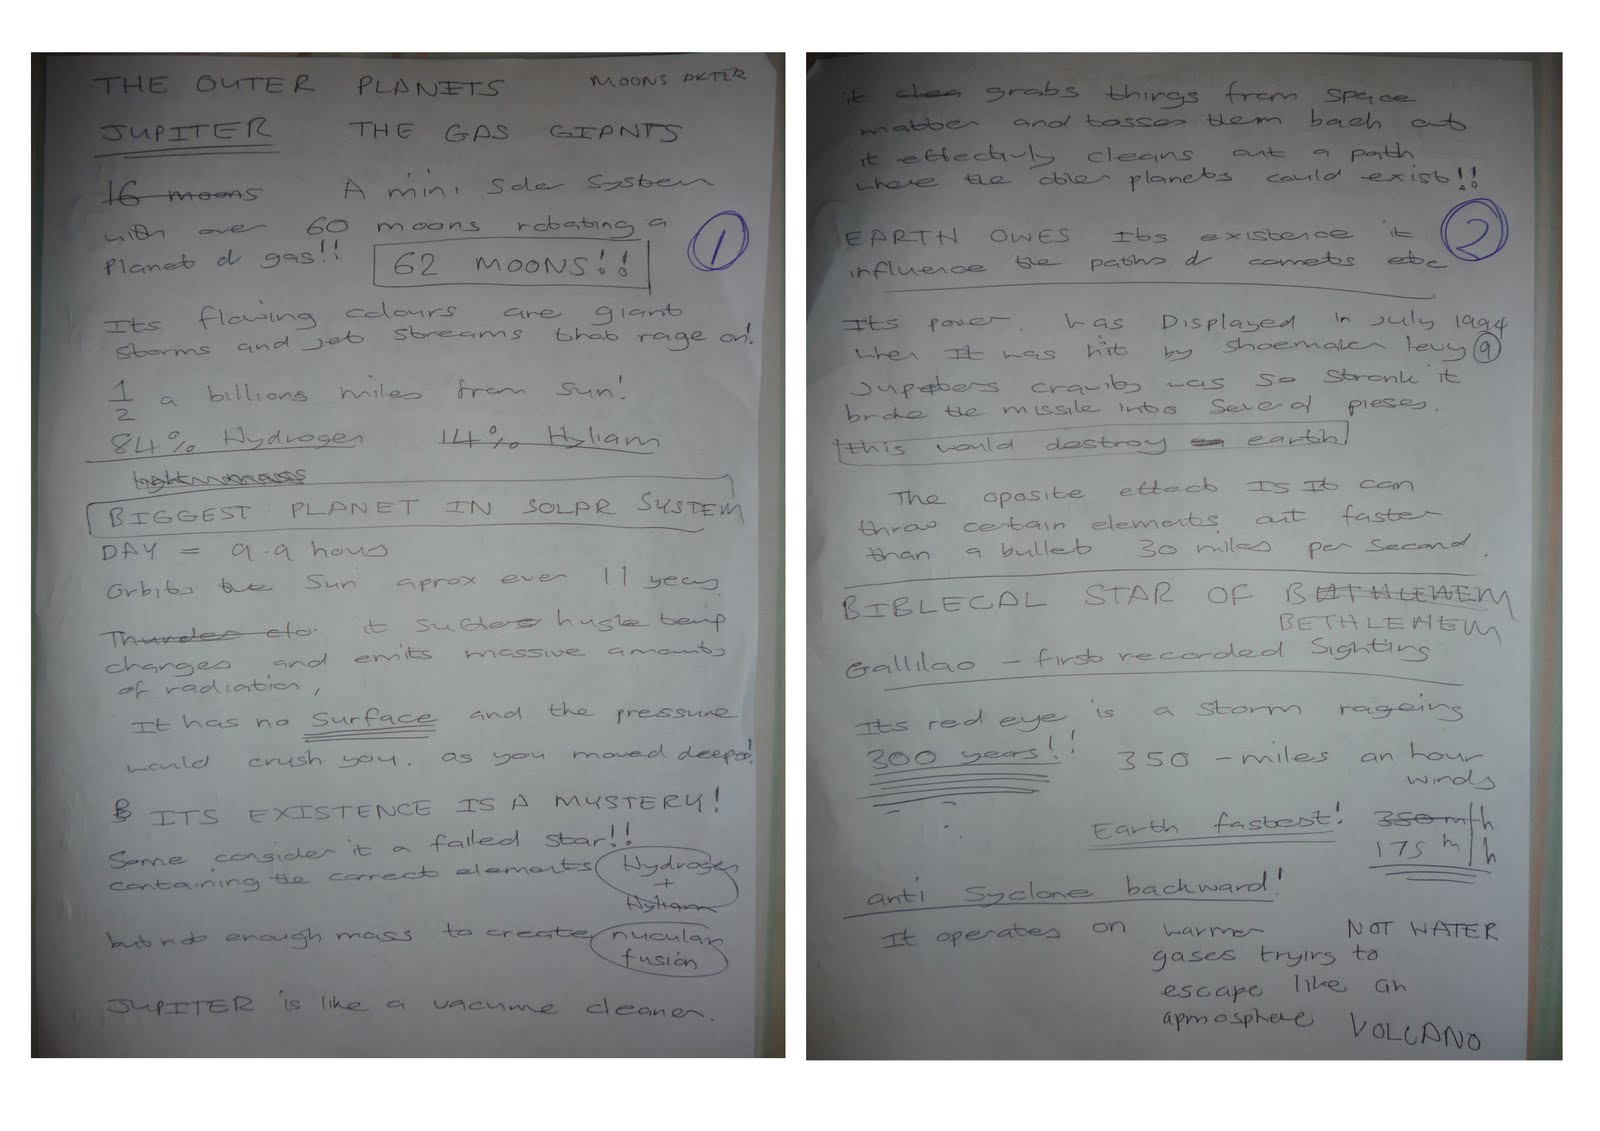 THE OUTER PLANETS MOONS AKTER
JUPITER THE GAS GIANTS
16 moons A mini Soler System
with over 60 moons rotating a
Planet of gas!! 62 MOONS!!
1
Its flowing colours are giant
storms and jet streams that rage on!
1/2 a billions miles from sun!
84% Hydrogen 14% Hyliam
BIGGEST PLANET IN SOLAR SYSTEM
DAY = 9.9 hours
Orbits the Sun aprox ever 11 years
Thunder etc. it huge being
changes and emits massive amounts
of radiation,
It has no Surface and the pressure
would crush you. as you moved deeper!
B ITS EXISTENCE IS A MYSTERY!
Some consider it a failed star!!
containing the correct elements Hydrogen
+
Hyliam
but not enough mass to create nucular
fusion
JUPITER is like a vacume cleaner.
it clea grabs things from space
matter and tosses them back out
it effectivly cleans out a path
where the other planets could exist!!
2
EARTH OWES Its existence it
influence the paths of comets etc
Its power. was Displayed in July 1994
when It was hit by Shoemaker levy 9
Jupiters cravity was so stronk it
broke the missile into Several pieses.
this would destroy earth
The oposite effect IS It can
throw certain elements out faster
than a bullet 30 miles per second.
BIBLECAL STAR OF BUTHLEHEM
BETHLEHEM
Gallilao - first recorded Sighting
Its red eye is a storm rageing
300 years!! 350 - miles an hour
winds
Earth fastest! 350m/h
175 m/h
anti Syclone backward!
It operates on warmer NOT WATER
gases tryirg to
escape like an
apmosphere VOLCANO